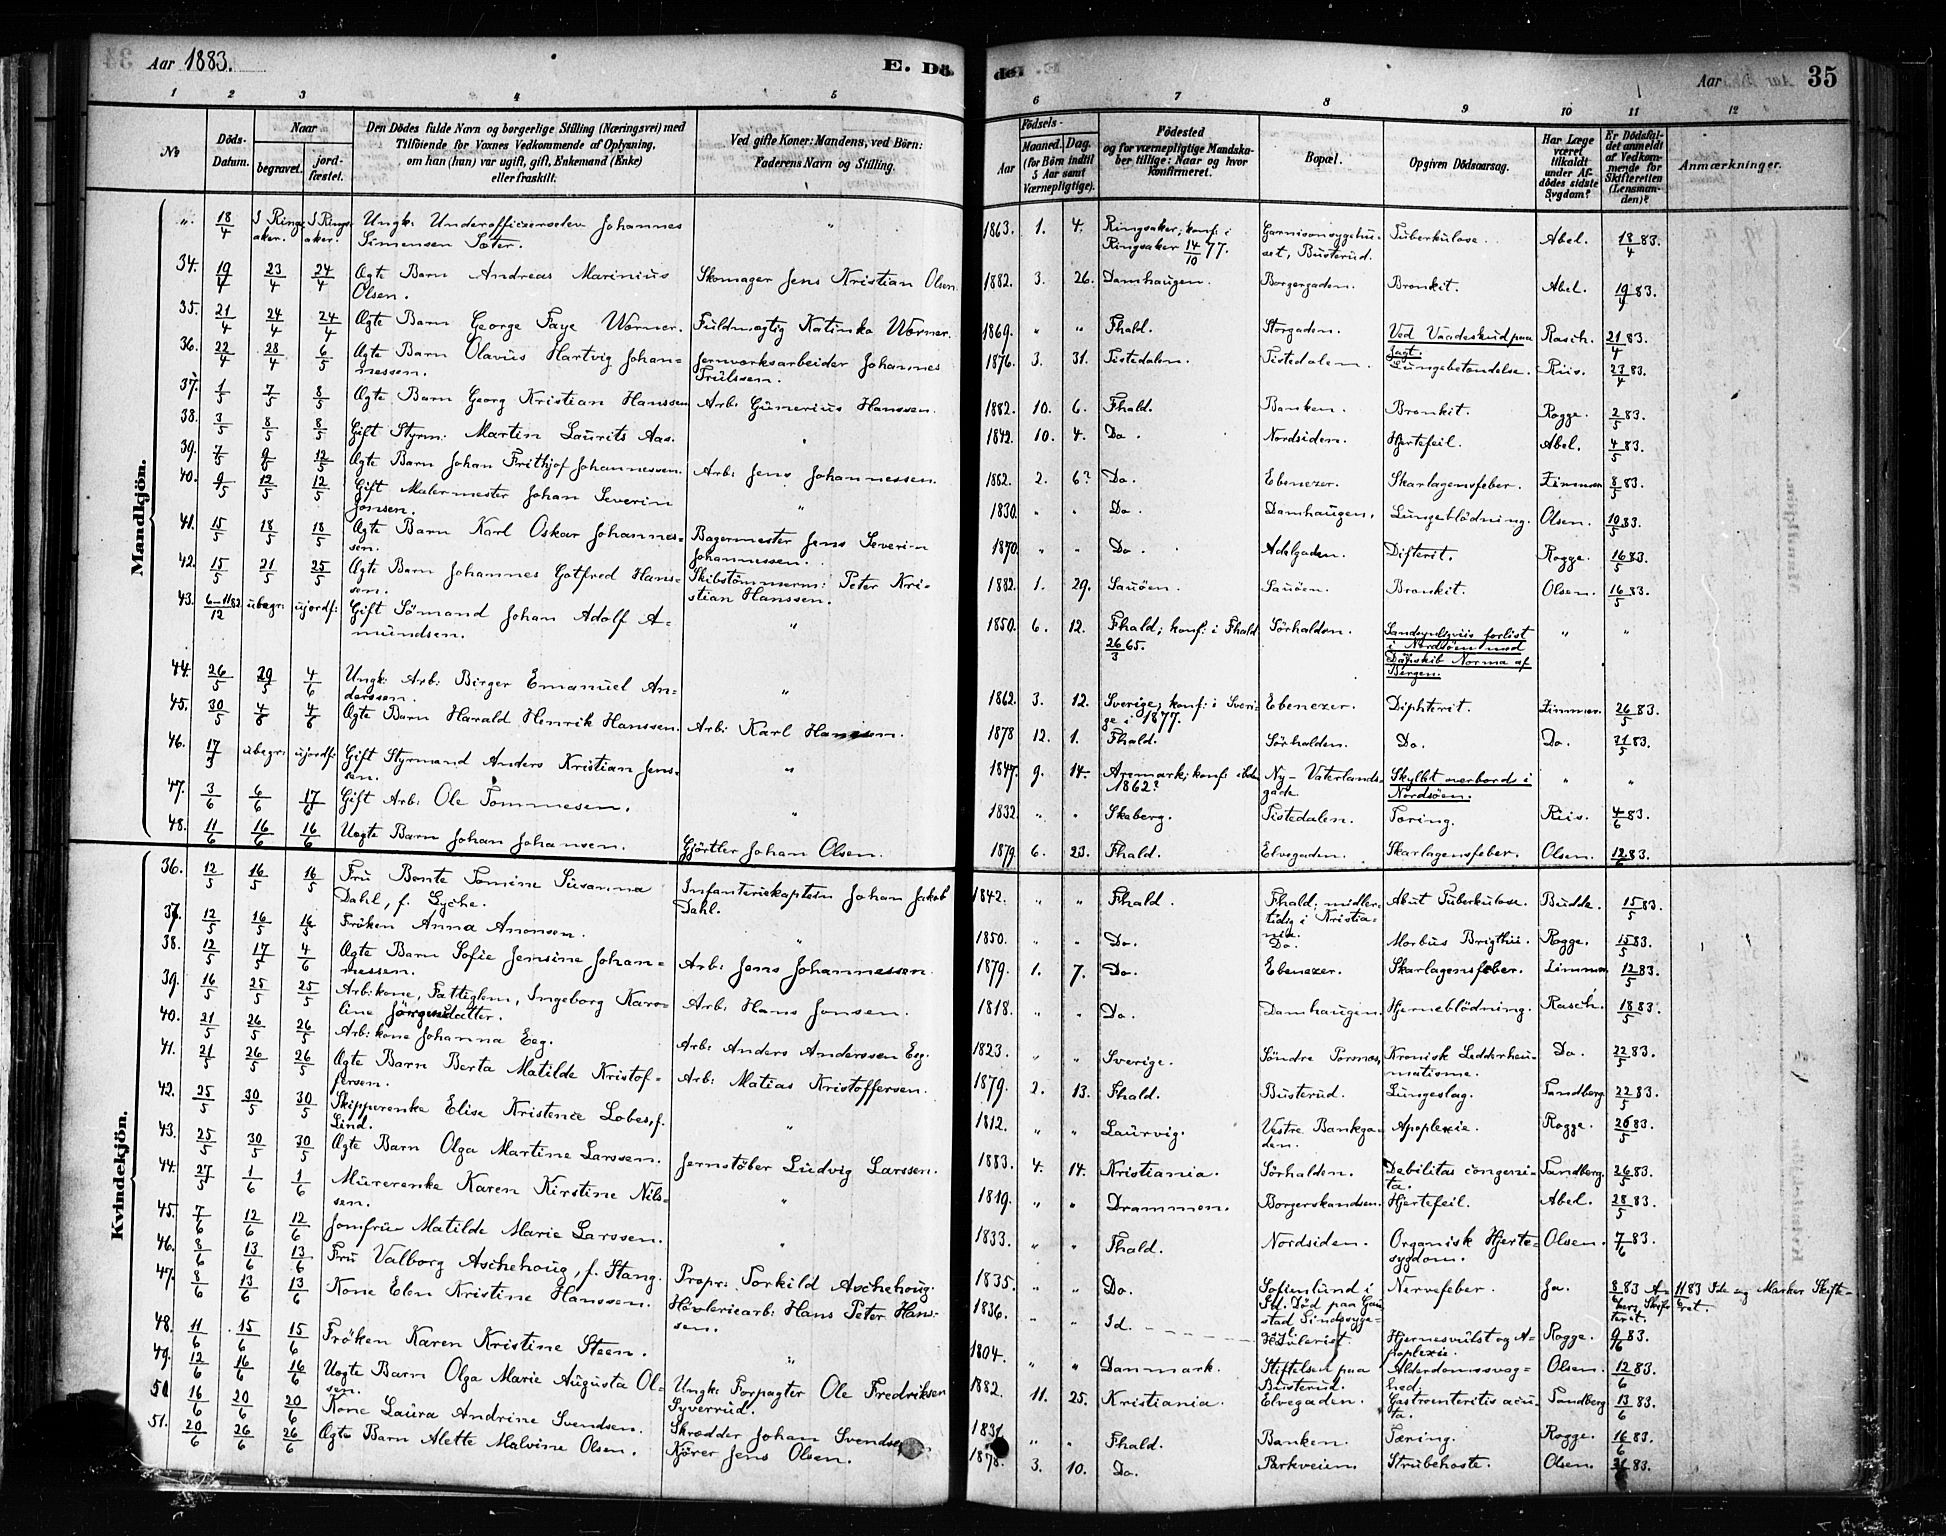 Aar 1883.
E. Dö-
de.
Aar
35
1 2 3 4 5 6 7 8 9 10 11 12
No
Döds-Datum.
Naar begravet. jordfæstet.
Den Dödes fulde Navn og borgerlige Stilling (Næringsvei) med Tilföiende for Voxnes Vedkommende af Oplysning, om han (hun) var ugift, gift, Enkemand (Enke) eller fraskilt.
Ved gifte Koner: Mandens, ved Börn: Faderens Navn og Stilling.
Födsels-
Aar Maaned. Dag. (for Börn indtil 5 Aar samt Værnepligtige).
Födested og for værnepligtige Mandskaber tillige: Naar og hvor konfirmeret.
Bopæl.
Opgiven Dödsaarsag.
Har Læge været tilkaldt under Afdödes sidste Sygdom?
Er Dödsfaldet anmeldt af Vedkommende for Skifteretten (Lensmanden)?
Anmærkninger.
Mandkjön.
" 18/4 I Ringsaker. I Ringsaker. Ungk. Underofficerselev Johannes Simensen Sæter. " 1863. 1. 4. Ringsaker; konf. i Ringsaker 14/10 77. Garnisonssygehuset, Busterud. Tuberkulose. Abel. 18/4 83.
34. 19/4 23/4 24/4 Ægte Barn Andreas Marinius Olsen. Skomager Jens Kristian Olsen. 1882. 3. 26. Damhaugen. Borgergaden. Bronkit. Abel. 19/4 83.
35. 21/4 24/4 24/4 Ægte Barn George Faye Werner. Fuldmægtig Katinka Werner. 1869. " " Fhald. Storgaden. Ved Vaadeskud paa Jagt. Rasch. 21/4 83.
36. 22/4 28/4 6/5 Ægte Barn Olavus Hartvig Johannessen. Jernværksarbeider Johannes Trulssen. 1876. 3. 31. Tistedalen. Tistedalen. Lungebetændelse. Riis. 23/4 83.
37. 1/5 7/5 8/5 Ægte Barn Georg Kristian Hanssen Arb. Gunerius Hanssen. 1882. 10. 6. Fhald. Banken. Bronkit. Rogge. 2/5 83.
38. 3/5 8/5 8/5 Gift Styrm. Martin Laurits Aas. " 1842. 10. 4. Do. Nordsiden. Hjertefeil. Abel. 4/5 83.
39. 7/5 9/5 12/5 Ægte Barn Johan Frithjof Johannessen. Arb: Jens Johannessen. 1882. 2. 6? Do. Ebenezer. Skarlagensfeber. Zimmer. 8/5 83.
40. 9/5 12/5 12/5 Gift Malermester Johan Severin Jonsen. " 1830. " " Do. Damhaugen. Lungeblödning. Olsen. 10/5 83.
41. 15/5 18/5 18/5 Ægte Barn Karl Oskar Johannessen. Bagermester Jens Severin Johannessen. 1870. " " Do. Adelgaden. Difterit. Rogge. 16/5 83.
42. 15/5 21/5 25/5 Ægte Barn Johannes Gotfred Hanssen. Skibstömmerm: Peter Kristian Hanssen. 1882. 1. 29. Sauöen. Sauöen. Bronkit. Olsen. 16/5 83.
43. 6-11/12 82 ubegr: ujordf: Gift Sömand Johan Adolf Amundsen. " 1850. 6. 12. Fhald; konf: i Fhald 26/3 65. Sörhalden. Sandsynligviis forlist i Nordsöen med Dampskib Norma af Bergen. " "
44. 26/5 29/5 4/6 Ungk: Arb: Birger Emanuel Anderssen. " 1862. 3. 12. Sverige; konf: i Sverige i 1877. Ebenezer. Diphterit. Zimmer. 26/5 83.
45. 30/5 4/6 4/6 Ægte Barn Harald Henrik Hanssen. Arb: Karl Hanssen. 1878 12. 1. Fhald. Sörhalden. Do. Do. 31/5 83.
46. 17/3 ubegr: ujordf: Gift Styrmand Anders Kristian Jenssen. " 1847. 9. 14. Aremark; konf: ibdm 1862? Ny-Vaterlandsgade. Skyllet overbord i Nordsöen. " "
47. 3/6 6/6 17/6 Gift Arb: Ole Tommesen. " 1832. " " Skeberg. Tistedalen. Tæring. Riis. 4/6 83.
48. 11/6 16/6 16/6 Uægte Barn Johan Johansen. Gjörtler Johan Olsen. 1879. 6. 23. Fhald. Elvegaden. Skarlagensfeber. Olsen. 12/6 83.
Kvindekjön.
36. 12/5 16/5 16/5 Fru Bente Tomine Susanna Dahl, f. Lyche. Infanterikaptein Johan Jakob Dahl. 1842. " " Fhald. Fhald; midlertidig i Kristiania. Akut Tuberkulose. Budde. 15/5 83.
37. 12/5 16/5 16/5 Fröken Anna Anonsen. " 1850. " " Do. Do. Morbus Brigthii. Rogge. 15/5 83.
38. 12/5 17/5 4/6 Ægte Barn Sofie Jensine Johannessen. Arb: Jens Johannessen. 1879. 1. 7. Do. Ebenezer. Skarlagensfeber. Zimmer. 12/5 83.
39. 16/5 25/5 25/5 Arb:kone, Fattiglem, Ingeborg Karoline Jörgensdatter. Arb: Hans Jonsen. 1818. " " Do. Damhaugen. Hjerneblödning. Rasch. 18/5 83.
40. 21/5 26/5 26/5 Arb:kone Johanna Eeg. Arb: Anders Anderssen Eeg. 1823. " " Sverige. Söndre Torsnæs, Kronisk Ledderheumatisme. Do. 22/5 83.
41. 21/5 26/5 26/5 Ægte Barn Berta Matilde Kristoffersen. Arb: Matias Kristoffersen. 1879. 2. 13. Fhald. Busterud. Lungeslag. Sandberg. 22/5 83.
42. 25/5 30/5 30/5 Skipperenke Elise Kristence Lobes, f. Lind. " 1812. " " Laurvig. Vestre Bankgaden. Apoplexie. Rogge. 26/5 83.
43. 25/5 30/5 30/5 Ægte Barn Olga Martine Larssen. Jernstöber Ludvig Larssen. 1883. 4. 14. Kristiania. Sörhalden. Debilitas congenita. Sandberg. 26/5 83.
44. 27/5 1/6 1/6 Murerenke Karen Kirstine Nilssen. " 1819. " " Drammen. Borgerskandsen. Hjertefeil. Abel. 28/5 83.
45. 7/6 12/6 12/6 Jomfru Matilde Marie Larssen. " 1833. " " Fhald. Nordsiden. Organisk Hjertesygdom. Olsen. 7/6 83.
46. 8/6 13/6 13/6 Fru Valborg Aschehoug, f. Stang. Propr: Torkild Aschehoug. 1835. " " Do. Sofienlund i Id. Död paa Gaustad Sindssyge- Nervefeber. Ja. 8/6 83 11/6 83 Ide og Marker Skifteret.
47. 8/6 13/6 13/6 Kone Elen Kristine Hanssen. Hövleriearb: Hans Peter Hanssen. 1836. " " Id. Hövleriet. Hjernesvulst og Apoplexie. Rogge. 9/6 83.
48. 11/6 15/6 15/6 Fröken Karen Kristine Steen. " 1804. " " Danmark. Stiftelsen paa Busterud. Alderdomssvaghed. Olsen. 12/6 83.
49. 12/6 16/6 16/6 Uægte Barn Olga Marie Augusta Olsen. Ungk: Forpagter Ole Fredriksen Syverrud. 1882. 11. 25. Kristiania. Elvegaden. Gastroenteritis acuta. Sandberg 13/6 83.
50 16/6 20/6 20/6 Kone Laura Andrine Svendsen. Skrædder Johan Svendsen 1831 " " Fhald. Banken. Tæring. Rogge. 16/6 83.
51. 20/6 26/6 26/6 Ægte Barn Alette Malvine Olsen. Kjörer Jens Olsen. 1878. 3. 10. Do. Parkveien. Strubehoste. Olsen. 21/6 83.